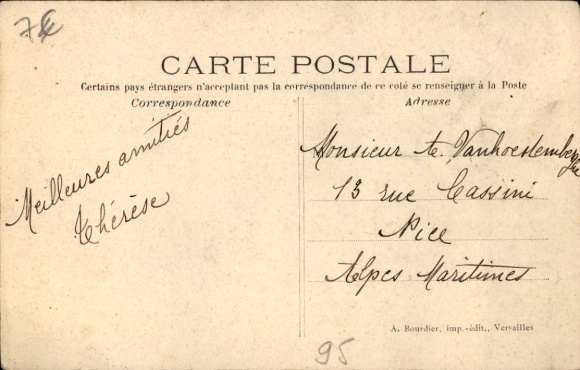 7€
CARTE POSTALE
Certains pays étrangers n'acceptant pas la correspondance de ce coté se renseigner à la Poste
Correspondance
Adresse
Meilleures amitiés
Thérèse
Monsieur
13 rue Cassini
Nice
Alpes Maritimes
A. Bourdier, imp.-édit., Versailles
95